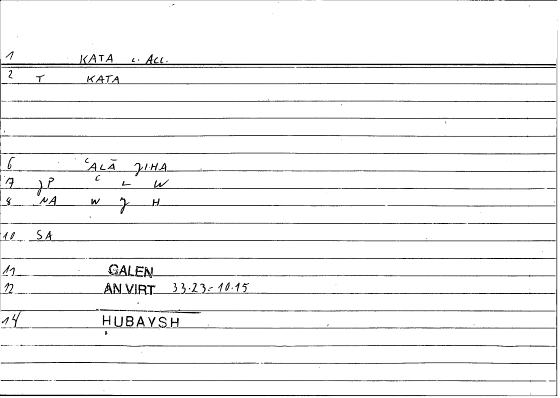 1 KATA c. ACC.
2 T KATA
6 ʿALĀ ǦIHA
7 ǦP ʿ L W
8 NA W Ǧ H
10 SA
11 GALEN
12 AN VIRT 33.23 - 10.15
14 HUBAYSH